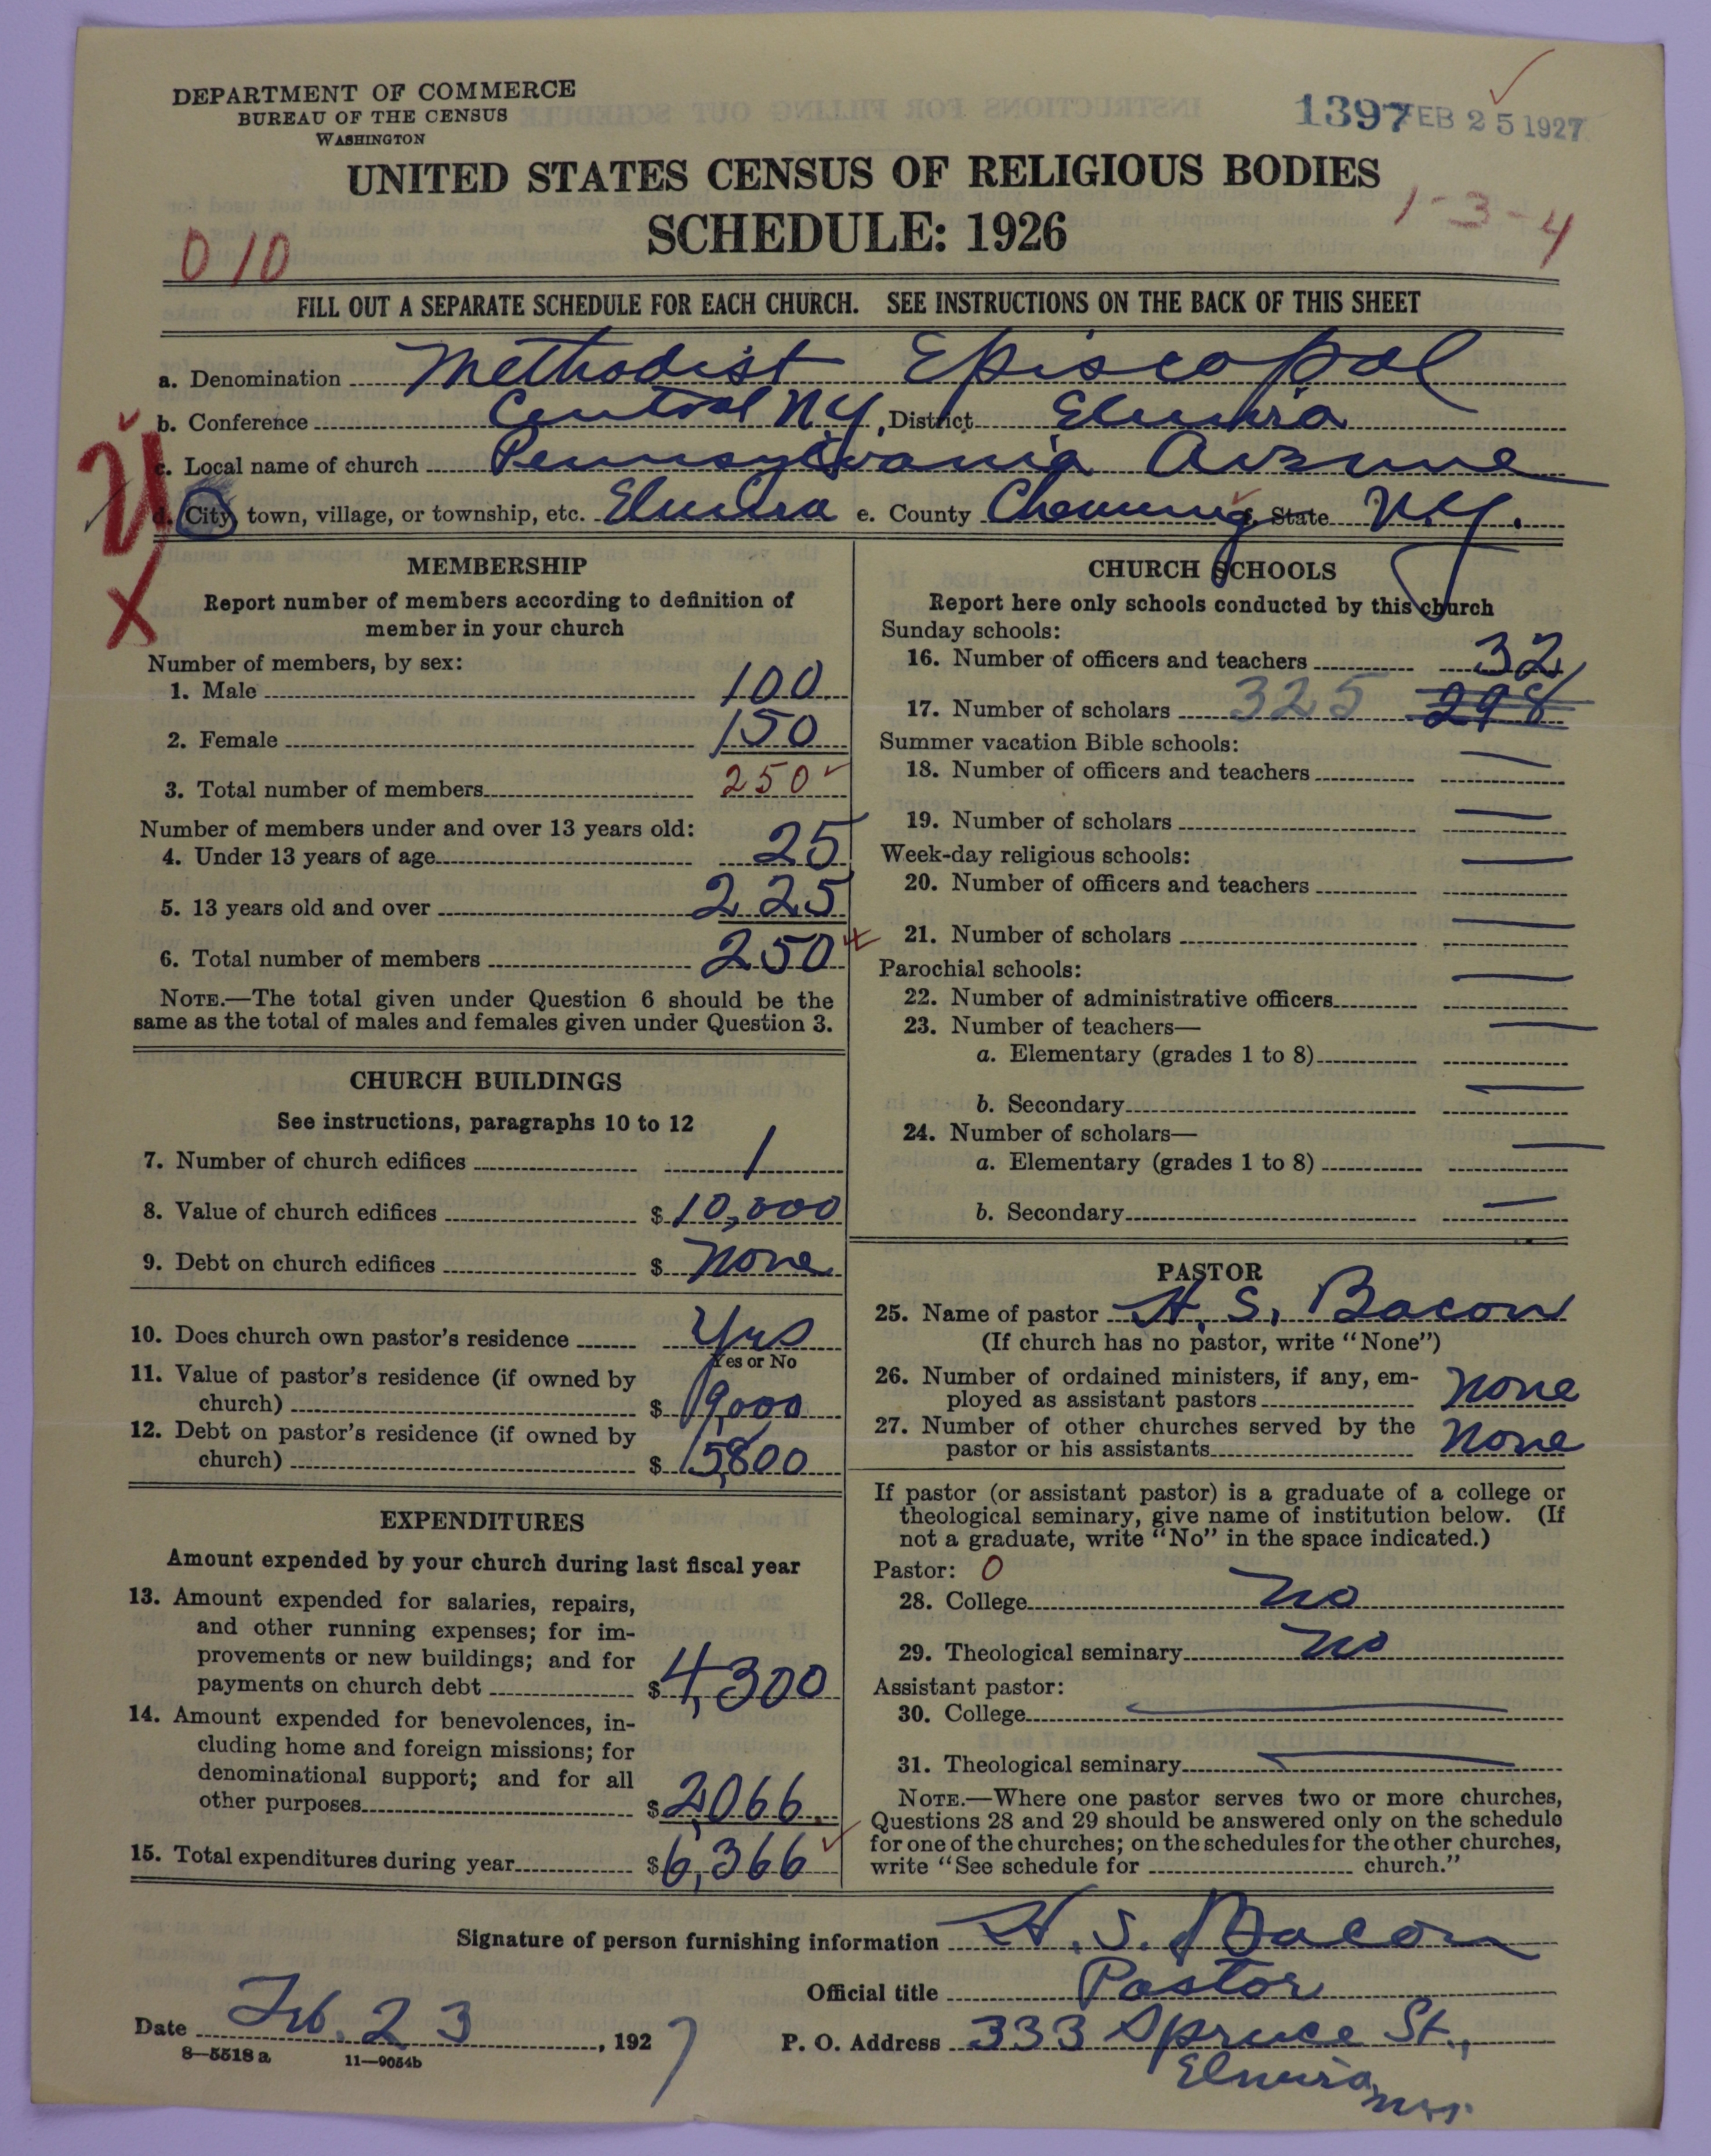 DEPARTMENT OF COMMERCE
BUREAU OF THE CENSUS
WASHINGTON
1397 FEB 25 1927
UNITED STATES CENSUS OF RELIGIOUS BODIES
1-3-4
SCHEDULE: 1926
010
FILL OUT A SEPARATE SCHEDULE FOR EACH CHURCH. SEE INSTRUCTIONS ON THE BACK OF THIS SHEET
a. Denomination Methodist Episcopal
b. Conference Central N.Y. District Elmira
c. Local name of church Pennsylvania Avenue
d. City, town, village, or township, etc. Elmira e. County Chemung f. State N.Y.
X
MEMBERSHIP
Report number of members according to definition of
member in your church
Number of members, by sex:
1. Male 100
2. Female 150
3. Total number of members 250
Number of members under and over 13 years old:
4. Under 13 years of age 25
5. 13 years old and over 225
6. Total number of members 250
NOTE.—The total given under Question 6 should be the
same as the total of males and females given under Question 3.
CHURCH BUILDINGS
See instructions, paragraphs 10 to 12
7. Number of church edifices 1
8. Value of church edifices $ 10,000
9. Debt on church edifices $ None
10. Does church own pastor's residence Yes
Yes or No
11. Value of pastor's residence (if owned by
church) $ 9,000
12. Debt on pastor's residence (if owned by
church) $ 5,800
EXPENDITURES
Amount expended by your church during last fiscal year
13. Amount expended for salaries, repairs,
and other running expenses; for im-
provements or new buildings; and for
payments on church debt $ 4,300
14. Amount expended for benevolences, in-
cluding home and foreign missions; for
denominational support; and for all
other purposes $ 2,066.
15. Total expenditures during year $ 6,366
CHURCH SCHOOLS
Report here only schools conducted by this church
Sunday schools:
16. Number of officers and teachers 32
17. Number of scholars 325 298
Summer vacation Bible schools:
18. Number of officers and teachers —
19. Number of scholars —
Week-day religious schools:
20. Number of officers and teachers —
21. Number of scholars —
Parochial schools:
22. Number of administrative officers —
23. Number of teachers—
a. Elementary (grades 1 to 8) —
b. Secondary —
24. Number of scholars—
a. Elementary (grades 1 to 8) —
b. Secondary —
PASTOR
25. Name of pastor H. S. Bacon
(If church has no pastor, write "None")
26. Number of ordained ministers, if any, em-
ployed as assistant pastors None
27. Number of other churches served by the
pastor or his assistants None
If pastor (or assistant pastor) is a graduate of a college or
theological seminary, give name of institution below. (If
not a graduate, write "No" in the space indicated.)
Pastor: 0
28. College No
29. Theological seminary No
Assistant pastor:
30. College —
31. Theological seminary —
NOTE.—Where one pastor serves two or more churches,
Questions 28 and 29 should be answered only on the schedule
for one of the churches; on the schedules for the other churches,
write "See schedule for church."
Signature of person furnishing information H. S. Bacon
Official title Pastor
Date Feb. 23, 1927
P. O. Address 333 Spruce St.,
Elmira, N.Y.
8—5518 a 11—9054b